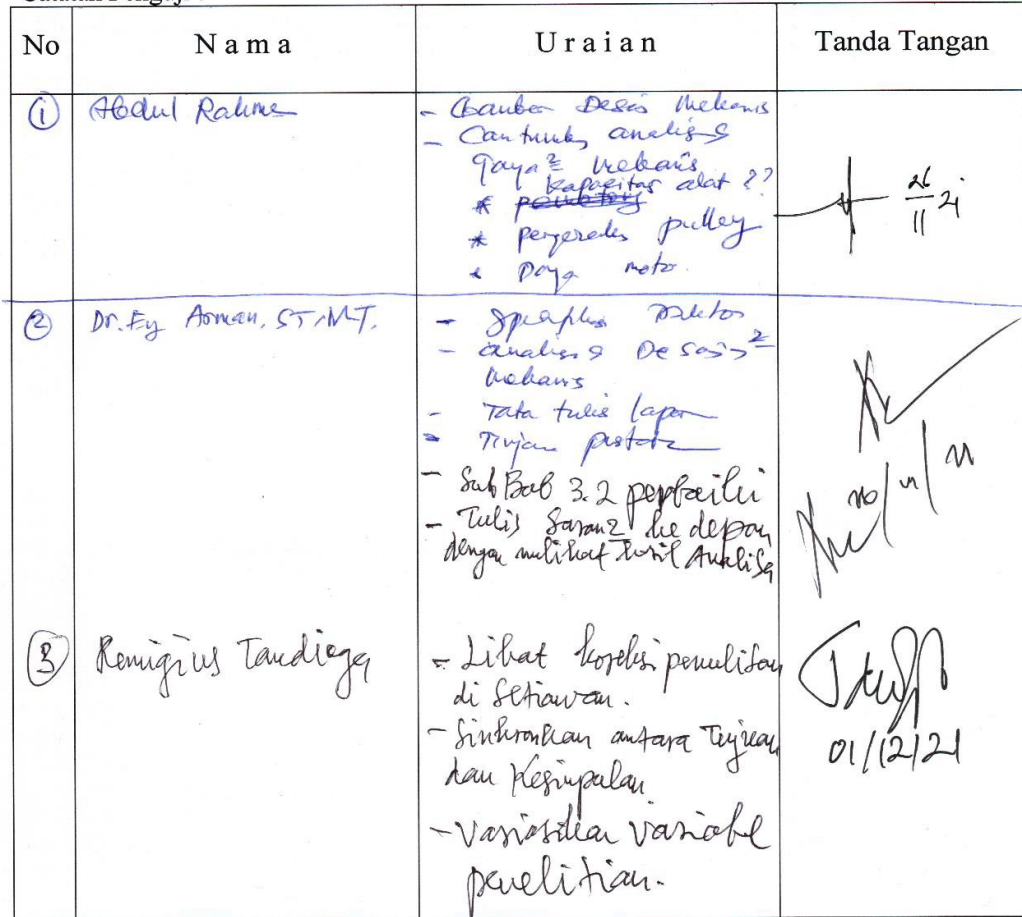 No
N a m a
U r a i a n
Tanda Tangan
① Abdul Rahman
- Gambar Desain Mekanis
- Cantumkan analisis
gaya² mekanis
kapasitas alat ??
*
* pengereman pulley
* Daya motor
26/11 21
② Dr. Arman, ST, MT.
-
- analisis Desain²
mekanis
- Tata tulis lapor
- Tinjau pustaka
- Sub Bab 3.2 perbaiki
- Tulis Saran2 ke depan
dengan melihat Hasil Analisa
③ Remigius Tandioga
- Lihat koreksi penulisan
di Setiawan.
- Sinkronkan antara Tujuan
dan Kesimpulan
- Variasikan variabel
penelitian.
01/12/21